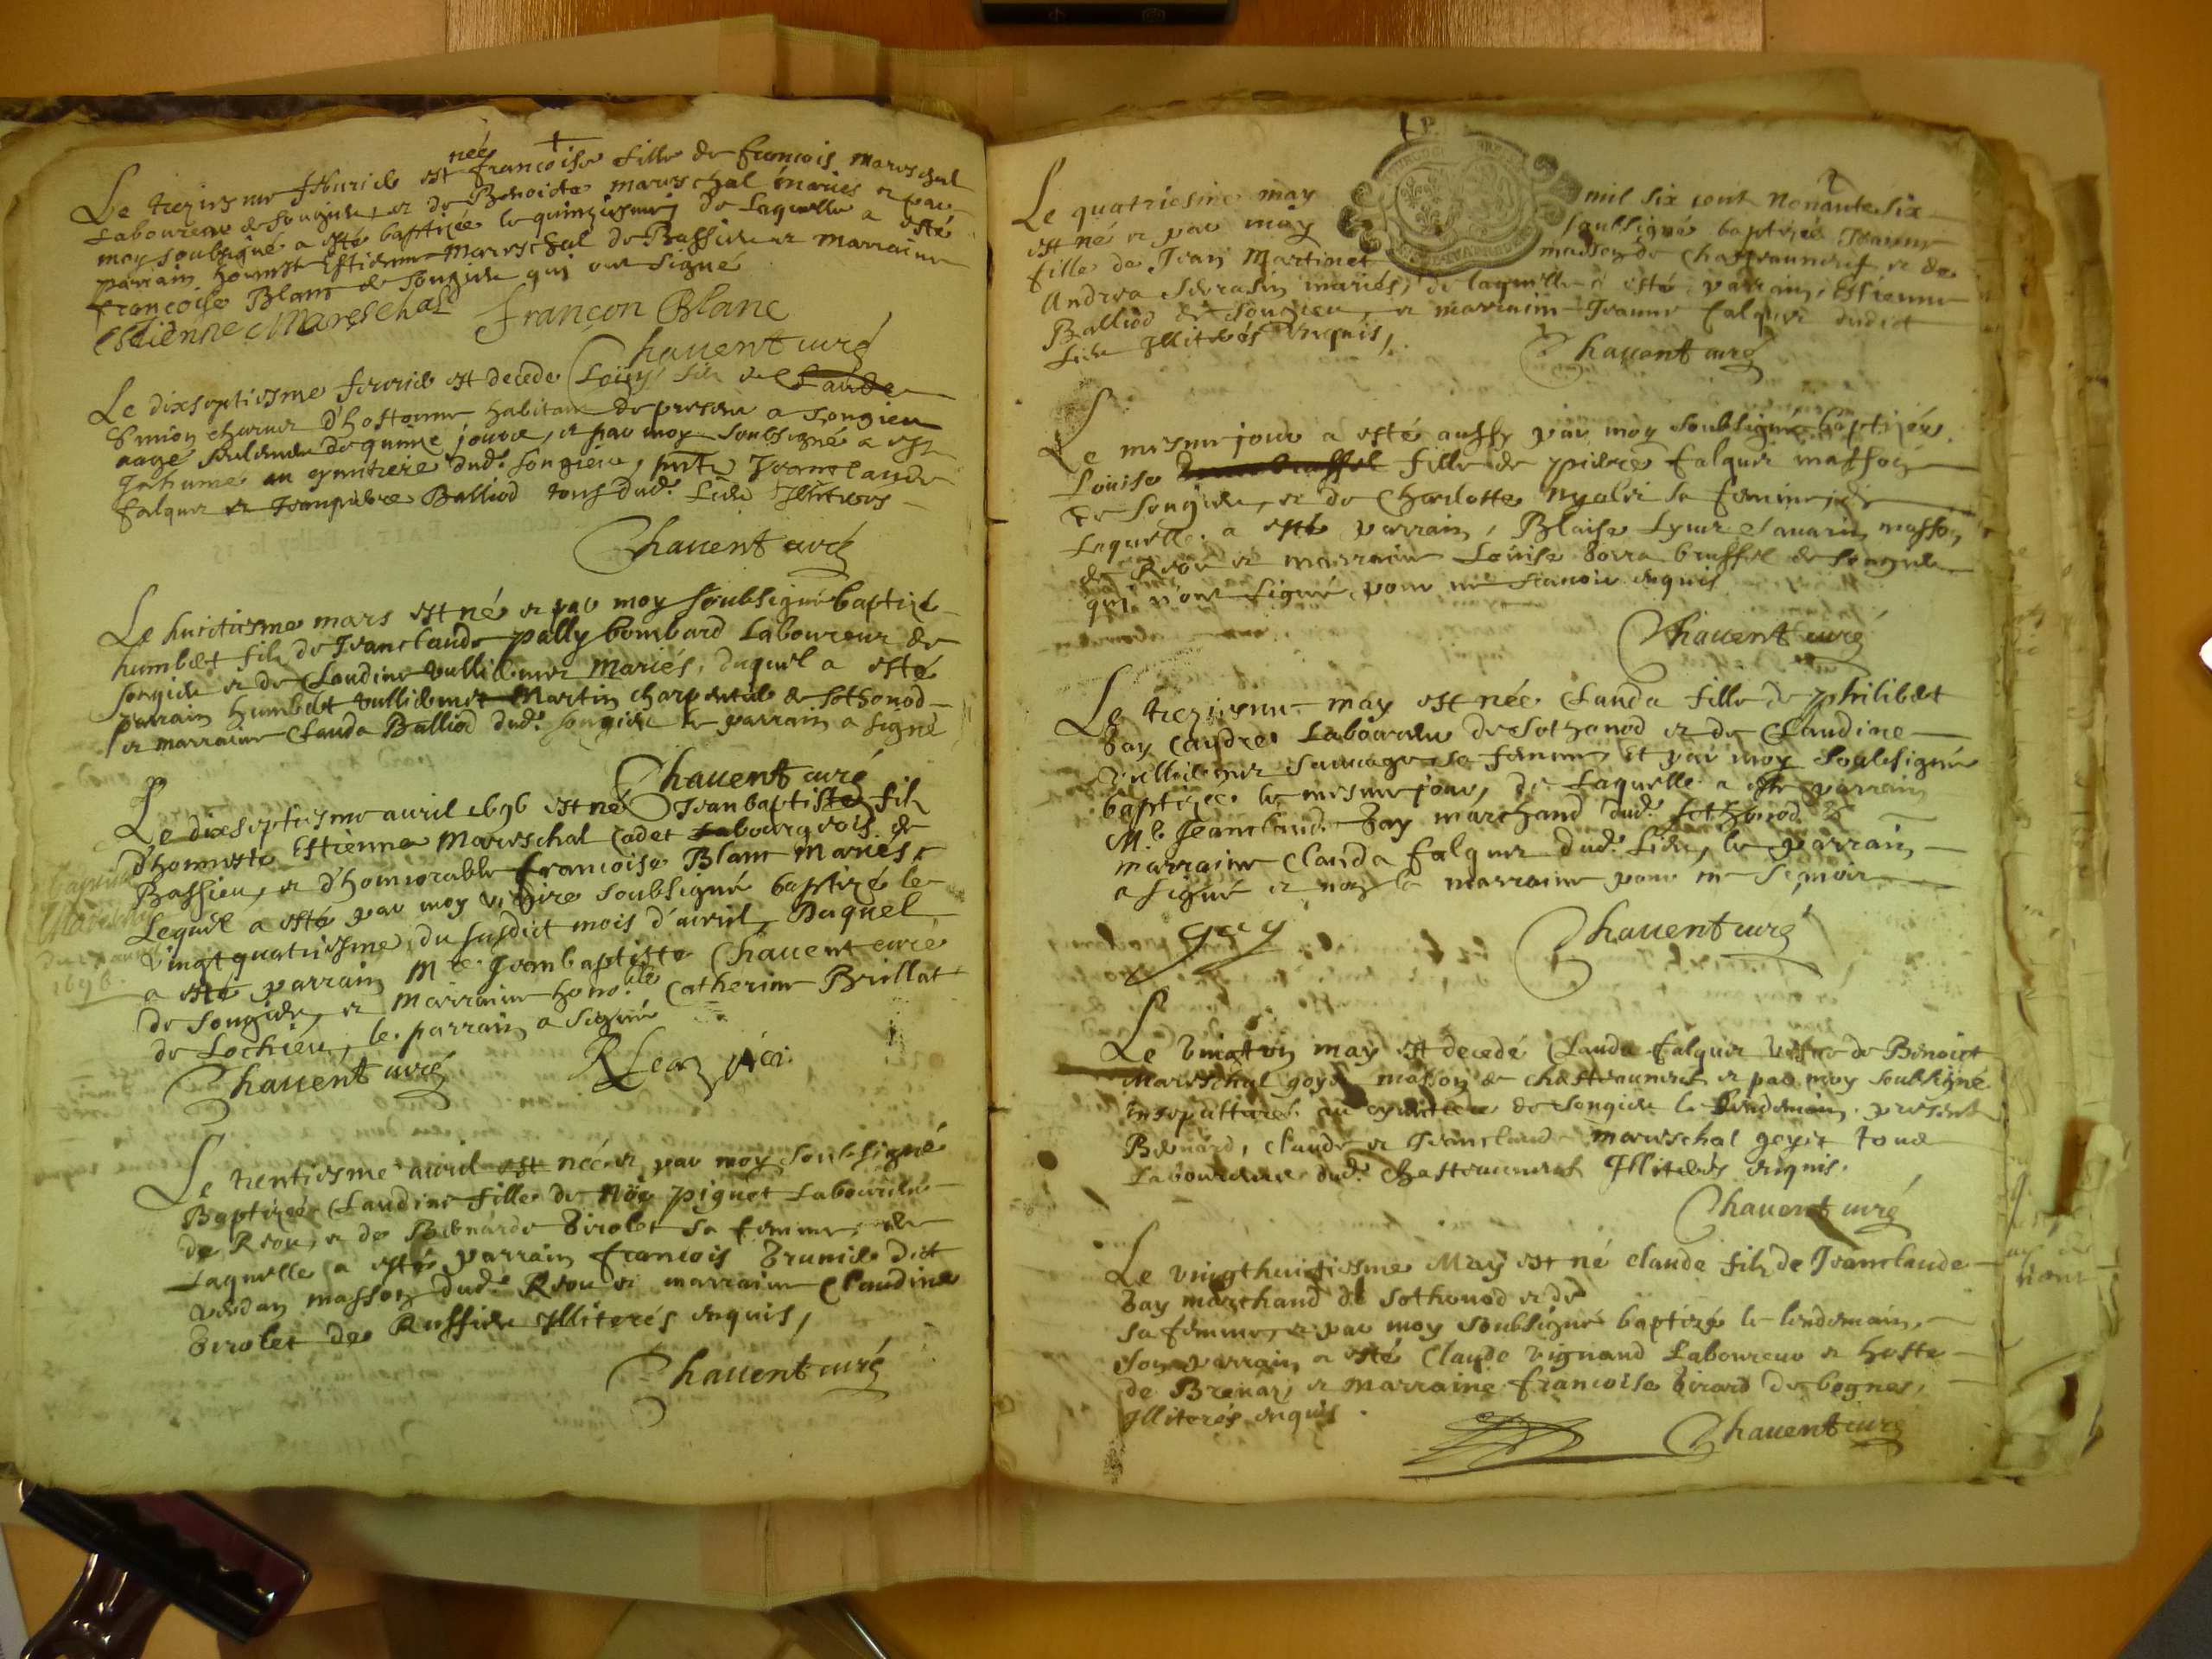 née
Le treziesme febvrier est francoise fille de francois mareschal
Laboureur de songieu, et de Benoiste mareschal mariés et par
moy soubsigné a esté baptizée le quinziesme, de Laquelle a esté
parrain honneste Estienne Mareschal de Bassieu et marraine
francoise Blanc de songieu qui ont signé
Estienne Mareschald françon Blanc
Chauent curé
Le dixseptiesme febvrier est decede Louys fils de Claude
habitant de present a songieu
aagé seulement de quinze jours, et par moy soubsigné a esté
inhumé au cymitiere dud. songieu, Jeanclaude
falquet et Jeanpierre Balliod tous dud. lieu Illiterés
Chauent curé
Le huictiesme mars est né et par moy soubsigné baptizé
humbert fils de Jeanclaude pally bombard Laboureur de
songieu et de Claudine vulliemet mariés, duquel a esté
parrain humbert vulliemet Martin charpentier de sothonod
et marraine Clauda Balliod dud. songieu le parrain a signé
Chauent curé
Le dixseptiesme auril 1696 est né Jeanbaptiste fils
d'honneste Estienne Mareschal Cadet bourgeois de
Bassieu, et d'honnorable francoise Blanc mariés
Lequel a esté par moy vicaire soubsigné baptizé le
vingtquatriesme du susdict mois d'auril, Duquel
a esté parrain Mre. Jeanbaptiste Chauent curé
de songieu, et marraine hono.ble Catherine Brillat
de Lochieu, le parrain a signé
1696.
Chauent curé
Le trentiesme auril est née et par moy soubsigné
Baptizée Claudine fille de Noë piguet Laboureur
de Reou, et de Bernarde Girolet sa femme, de
Laquelle a esté parrain francois brunier dict
verdan masson dud. Reou et marraine Claudine
Girolet de Ruffieu Illiterés enquis,
Chauent curé
Le quatriesme may mil six cent nonante six
est né et par moy soubsigné baptizée Jeanne
fille de Jean Martinet masson de Chastraumert et de
Andrea Serrasin mariés, de laquelle a esté parrain, Estienne
Balliod de songieu, et marraine Jeanne falquet dudict
lieu Illiterés enquis,
Chauent curé
Le mesme jour a esté aussy par moy soubsigné baptizée
Louise fille de pierre falquet masson
de songieu, et de Charlotte sa femme, de
Laquelle a esté parrain, Blaise Savarin masson
de Reou et marraine Louise brussel de songieu
qui n'ont signé pour ne scauoir enquis
Chauent curé
Le treziesme may est née Clauda fille de philibert
Gay Laboureur de sothonod et de Claudine
vulliemet sauuage sa femme, Et par moy soubsigné
baptizée le mesme jour, de Laquelle a esté parrain
Mr. Jeanclaude Gay marchand dud. sothonod &
marraine Clauda falquet dud. lieu, le parrain
a signé et non la marraine pour ne scauoir
gay Chauent curé
Le vingt un may est decedé Clauda falquet vefue de Benoict
Mareschal masson de chastraumert et par moy soubsigné
au cymitiere de songieu le lendemain present
Bernard, Claude et Jeanclaude mareschal tous
Laboureurs dud. Chastraumert Illiterés enquis.
Chauent curé
Le vingthuictiesme May est né claude fils de Jeanclaude
Gay marchand de Sothonod et de
sa femme, et par moy soubsigné baptizé le lendemain,
son parrain a esté Claude vignand Laboureur et hoste
de Brenaz, et marraine francoise Girard de bognes,
Illiterés enquis
Chauent curé